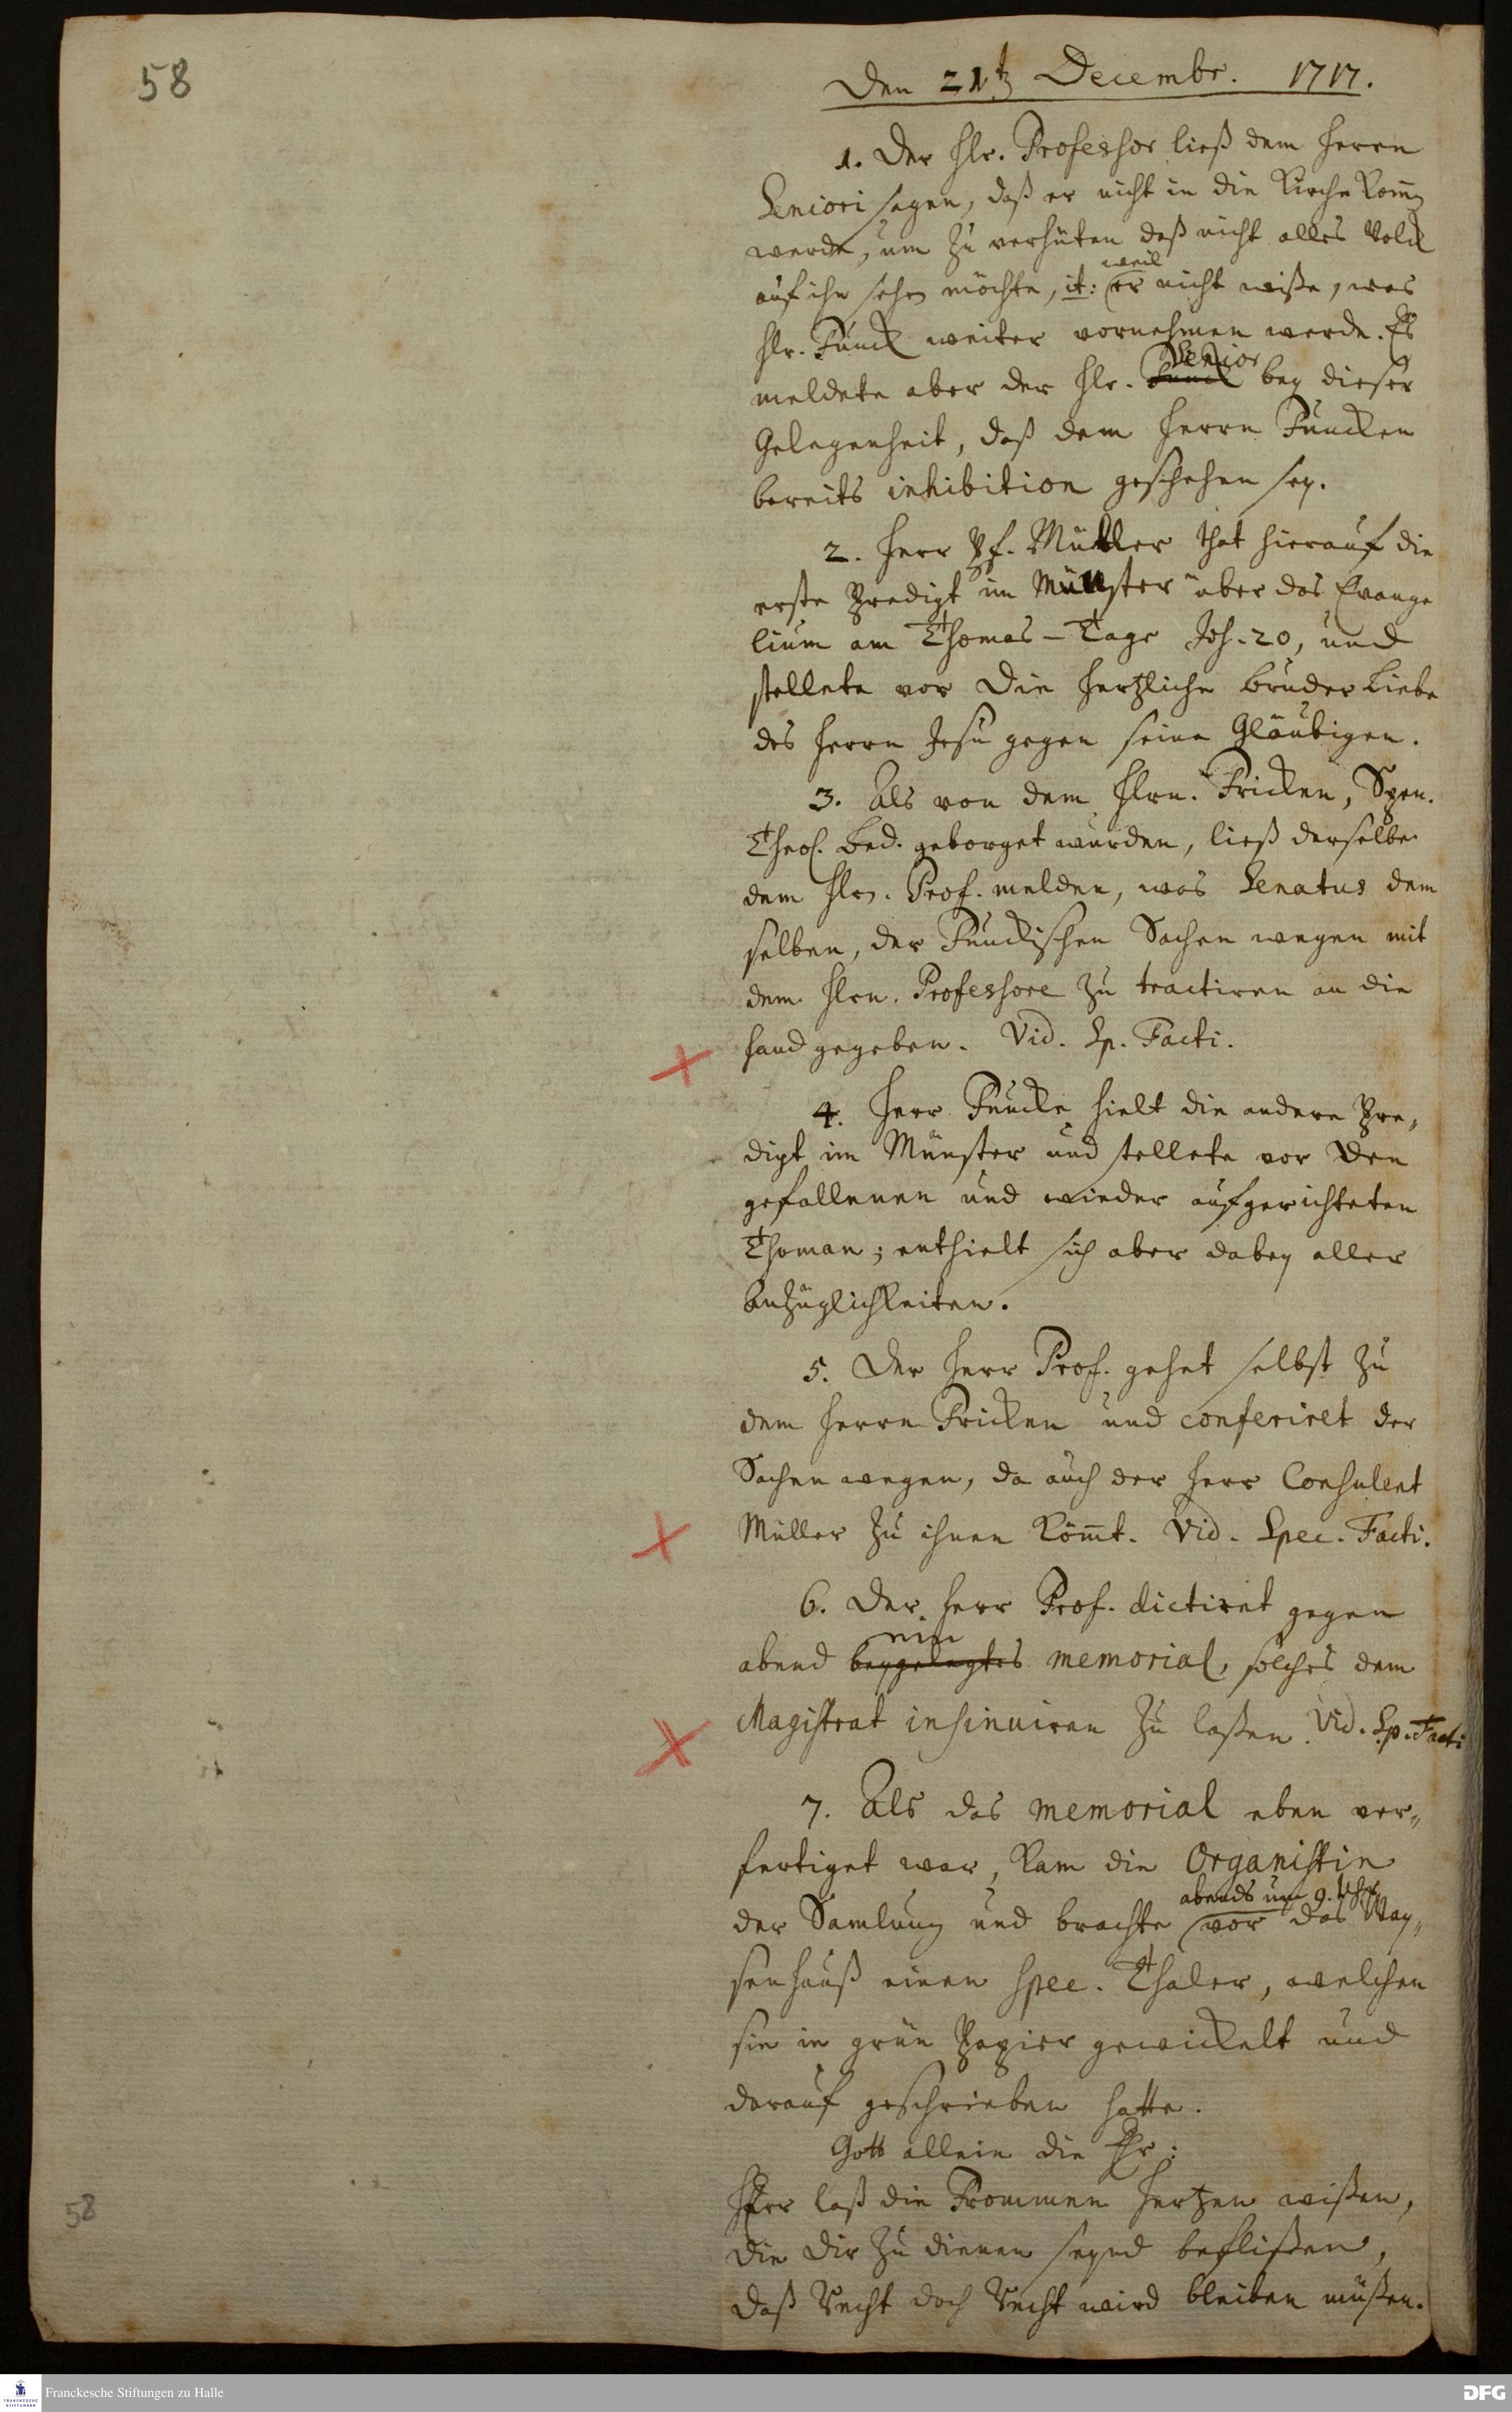 58
Den 21t Decembr. 1717.
1. Der Hr. Professor ließ dem Herrn
Seniori sagen, daß er nicht in die Kirche komen
werde, um zu verhüten daß nicht alles Volck
auf ihn sehen möchte, it: weil er nicht wiße, was
Hr. Funck weiter vornehmen werde. Es
meldete aber der Hr. Funck Senior bey dieser
Gelegenheit, daß dem Herrn Funcken
bereits inhibition geschehen sey.
2. Herr Pf. Müller that hierauf die
erste Predigt im Münster über das Evange
lium am Thomas-Tage Joh. 20, und
stellete vor Die hertzliche Bruder Liebe
des Herrn Jesu gegen seine Gläubigen.
3. Als von dem Hrn. Fricken, Spen.
Theol. Bed. geborget wurden, ließ derselbe
dem Hrn. Prof. melden, was Senatus dem
selben, der Funckischen Sachen wegen mit
dem Hrn. Professore zu tractiren an die
hand gegeben. Vid. Sp. Facti.
4. Herr Funcke hielt die andere Pre,
digt im Münster und stellete vor Den
gefallenen und wieder aufgerichteten
Thoman; enthielt sich aber dabey aller
Anzüglichkeiten.
5. Der Herr Prof. gehet selbst zu
dem Herrn Fricken und conferiret der
Sachen wegen, da auch der Herr Consulent
Müller zu ihnen kömt. Vid. Spec. Facti.
6. Der Herr Prof. dictiret gegen
abend beygelegtes ein memorial, solches dem
Magistrat insinuiren zu laßen. Vid. Sp. Facti
7. Als das memorial eben ver„
fertiget war, kam die Organistin
der Samlung und brachte abends um 9. Uhr vor das Way„
senhauß einen Spec. Thaler, welchen
sie in grün Papier gewickelt und
darauf geschrieben hatte.
Gott allein die Ehr:
HErr laß die Frommen Hertzen wißen,
Die Dir zu dienen seynd beflißen,
Daß Recht doch Recht wird bleiben müßen.
58
Franckesche Stiftungen zu Halle
DFG